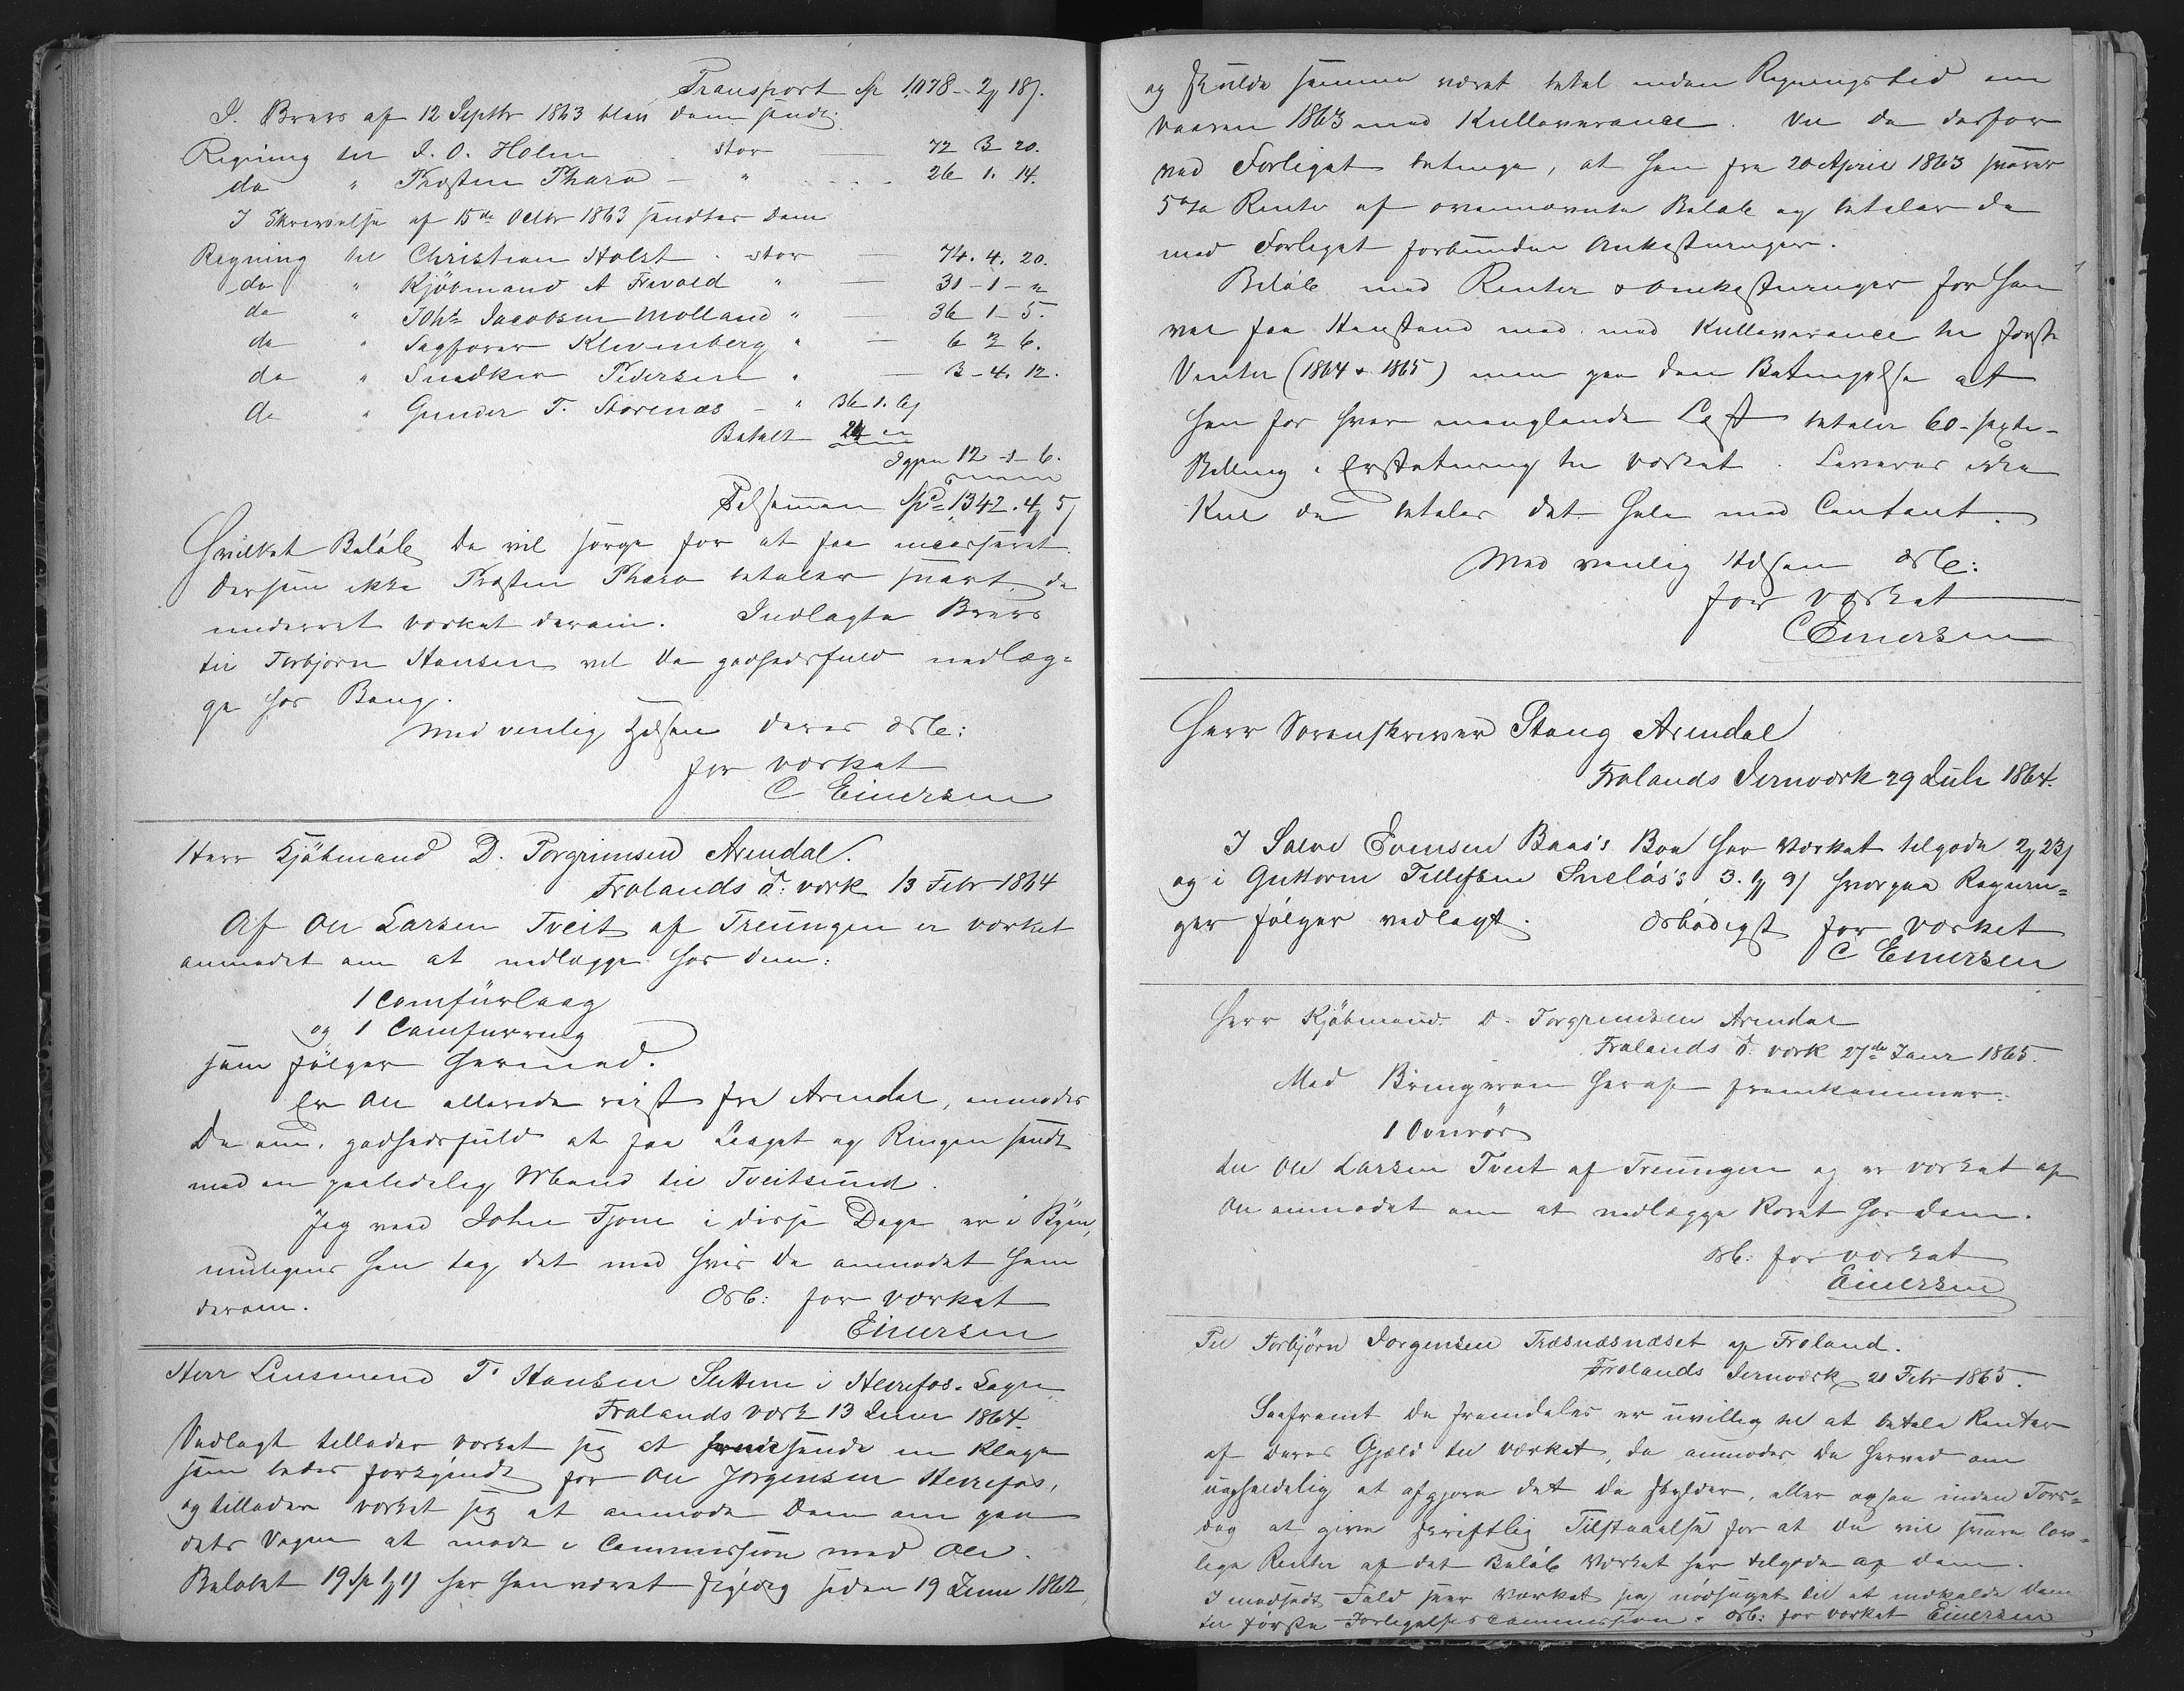 Transport Sp 1078 - 2 18.
I Brev af 12 Septbr 1863 blev Dem sendt
Regning til I. O. Holm stor — 72 3 20.
do " Kirsten Thara — " 26. 1. 14.
I Skrivelse af 15de Octbr 1863 sendtes Dem
Regning til Christian Holst stor — 74. 4. 20.
do " Kjöbmand A Frivold " — 31 - 1 - "
do " Johs Jacobsen Molland " — 36 1 - 5.
do " Sagförer Klevenberg " — 6 3 6.
do " Snedker Pedersen " — 3 - 4. 12.
do " Gunder T. Storenæs — " 36 1. 6
Betalt 24 "
Igjen 12 - 1 - 6.
Tilsammen Spd 1342. 4 5
Hvilket Belöb De vil sörge for at faa incasseret.
Dersom ikke Kirsten Thara betaler snart, da
underret Værket derom. Indlagte Brev
til Torbjörn Hansen vil De godhedsfuld nedlæg-
ge hos Bang.
Med venlig Hilsen Deres ærb:
for Værket
C Einersen
Herr Kjöbmand D. Torgrimsen Arendal.
Frolands J: værk 13 Febr 1864
Af Ole Larsen Tveit af Treungen er Værket
anmodet om at nedlægge hos Dem:
1 Comfürlaag
og 1 Comfurring
som fölger hermed.
Er Ole allerede reist fra Arendal, anmodes
De om, godhedsfuld at faa Laaget og Ringen sendt
med en paalidelig Mand til Tveitsund.
Jeg veed John Tjom i disse Dage er i Byen,
muligens han tog det med hvis De anmodet ham
derom. Ærb: for Værket
Einersen
Herr Lensmand T. Hansen Lettom i Herefos-Sogn
Frolands Værk 13 Juni 1864.
Vedlagt tillader Værket sig at sende en Klage
som bedes forkyndt for Ole Jörgensen Herefos,
og tillader Værket sig at anmode Dem om paa
dets Vegne at möde i Commission med Ole.
Belöbet 19 Sp 1 11 har han været skyldig siden 19 Juni 1862
og skulde samme været betal inden Rygningstid om
Vaaren 1863 med Kulleverance. Vil De derfor
ved Forliget betinge, at han fra 20 April 1863 svarer
5% Renter af ovennævnte Belöb og betaler de
med Forliget forbundne Omkostninger.
Belöb med Renter & Omkostninger for han
vel faa Henstand med med Kulleverance til förste
Vinter (1864 & 1865) men paa den Betingelse at
han for hver manglende Læst betaler 60 - sexti -
Skilling i Erstatning til Værket. Leveres ikke
Kul da betales det hele med Contant.
Med venlig Hilsen ærb:
for Værket
C Einersen
Herr Sorenskriver Stang Arendal
Frolands Jernværk 29 Juli 1864.
I Salve Evensen Baas's Boe har Værket tilgode 2 23
og i Guttorm Tellefsen Sneløs's 3. 1 9 hvorpaa Regnin-
ger fölger vedlagt. Ærbödigst for Værket
C Einersen
Herr Kjöbmand D. Torgrimsen Arendal
Frolands J. værk 27de Janr 1865.
Med Bringeren heraf fremkommer:
1 Ovnrör
til Ole Larsen Tveit af Treungen og er Værket af
Ole anmodet om at nedlægge Röret hos Dem.
Ærb: for Værket
Einersen
Til Torbjörn Jörgensen Træsnæsnæset af Froland.
Frolands Jernværk 21 Febr 1865.
Saafremt De fremdeles er uvillig til at betale Renter
af Deres Gjæld til Værket, da anmodes De herved om
uopholdelig at afgjöre det De skylder, eller ogsaa inden Tors-
dag at give skriftlig Tilstaaelse for at De vil svare lov-
lige Renter af det Belöb Værket har tilgode af Dem.
I modsat Fald seer Værket sig nödsaget til at indkalde Dem
til förste Forligelsescommission. Ærb: for Værket Einersen